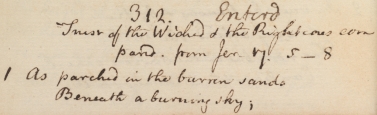 312. Enterd
Trust of the Wicked & the Righteous com
pard. from Jer. 17. 5–8
1 As parched in the barren sands
Beneath a burning sky;